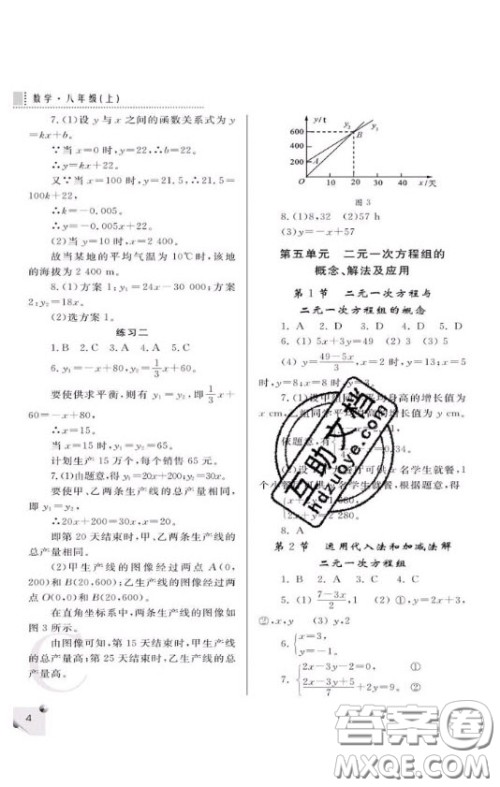 数学·八年级(上)
7.(1)设 y 与 x 之间的函数关系式为
y=kx+b。
∵当 x=0 时,y=22,
∴y=kx+22。
又∵当 x=100 时,y=21.5,∴21.5=
100k+22。
∴k=-0.005。
∴y=-0.005x+22。
(2)当 y=10 时,x=2 400。
故当某地的平均气温为 10℃时,该地
的海拔为 2 400 m。
8.(1)方案 1:y=24x-30 000;方案
2:y=18x。
(2)选方案 1。
练习二
1.B 2.C 3.D 4.A 5.C
6.y₁=-x+80,y₂=1/3x+60。
要使供求平衡,则有 y₁=y₂,即1/3x+
60=-x+80,
∴x=15。
当 x=15 时,y₁=y₂=65。
计划生产 15 万个,每个销售 65 元。
7.(1)由题意,得 y₁=20x+200;y₂=30x。
要使甲、乙两条生产线的总产量相同,
即 y₁=y₂。
∴20x+200=30x,∴x=20。
即第 20 天结束时,甲、乙两条生产线的
总产量相同。
(2)甲生产线的图像经过两点 A(0,
200)和 B(20,600);乙生产线的图像经过两
点 O(0,0)和 B(20,600)。
在直角坐标系中,两条生产线的图像如
图 3 所示。
由图像可知,第 15 天结束时,甲生产线
的总产量高;第 25 天结束时,乙生产线的总
产量高。
4
y/t
600
400
200
O
A
B
y₂
y₁
10 20 30 40 x/天
图 3
8.(1)8,32 (2)57 h
(3)y=-x+57
第五单元 二元一次方程组的
概念、解法及应用
第 1 节 二元一次方程与
二元一次方程组的概念
1.A 2.D 3.
6.(1)5x+3y=49 (2)0 (3)5
(4) y=(49-5x)/3,x=2 时,y=13;x=5
时,y=8;x=8 时,
7.(1)设甲组同学平均身高的增长值为
x cm,乙组同学平均身高的增长值为 y cm。
依题意,得
名学生就餐,1
个小餐厅可供 y 名学生就餐。依题意,得
8.A
第 2 节 运用代入法和加减法解
二元一次方程组
1.A 2.B 3.D 4.B
5.(1)(7-3x)/2,1 (2)①,y=2x+3,
②,x,y (3)y,①+②
6.{x=3,
y=-3。
7.{2x-3y-2=0, ①
(2x-3y+5)/7+2y=9。 ②
互助文档
hdzuoye.com
答案圈
MXQE.COM